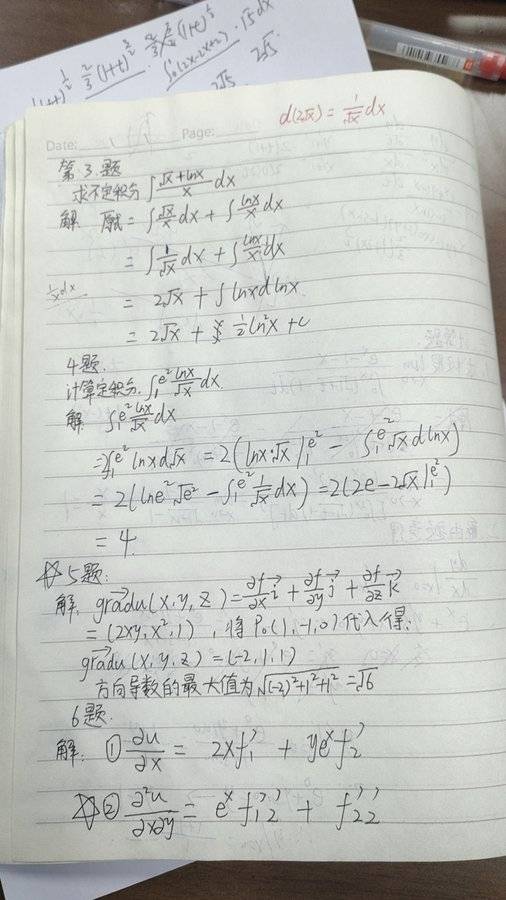 (1+t)^{1/2} 2/3 (1+t)^{3/2}
2√5
2√5
d(2√x) = 1/√x dx
Date: Page:
第3.题
求不定积分 ∫ (√x+lnx)/x dx
解 原式 = ∫ √x/x dx + ∫ lnx/x dx
= ∫ 1/√x dx + ∫ lnx/x dx
1/x dx
= 2√x + ∫ lnx d lnx
= 2√x + 1/2 ln²x + c
4题.
计算定积分. ∫₁^{e²} lnx/√x dx.
解 ∫₁^{e²} lnx/√x dx
= 2∫₁^{e²} lnx d√x = 2(lnx·√x |₁^{e²} - ∫₁^{e²} √x d lnx)
= 2(lne²·√e² - ∫₁^{e²} 1/√x dx) = 2(2e - 2√x |₁^{e²})
= 4.
☆5题:
解: gradu(x,y,z) = ∂f/∂x i + ∂f/∂y j + ∂f/∂z k
= (2xy, x², 1) , 将 P₀(1,-1,0) 代入得:
gradu(x,y,z) = (-2,1,1)
方向导数的最大值为 √((-2)²+1²+1²) = √6
6题.
解: ① ∂u/∂x = 2xf₁' + ye^x f₂'
☆② ∂²u/∂x∂y = e^x f₁₂'' + f₂₂''